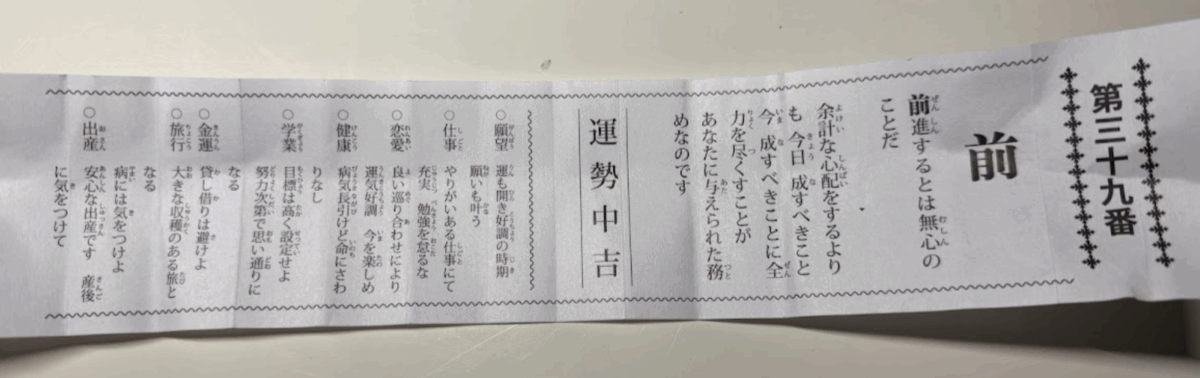 第三十九番
前
前進するとは無心の
ことだ
余計な心配をするより
も 今日 成すべきこと
今 成すべきことに全
力を尽くすことが
あなたに与えられた務
めなのです
運勢中吉
○願望 運も開き好調の時期
願いも叶う
○仕事 やりがいある仕事にて
充実 勉強を怠るな
○恋愛 良い巡り合わせにより
運気好調 今を楽しめ
○健康 病気長引けど命にさわ
りなし
○学業 目標は高く設定せよ
努力次第で思い通りに
なる
○金運 貸し借りは避けよ
○旅行 大きな収穫のある旅と
なる
病には気をつけよ
○出産 安心な出産です 産後
に気をつけて